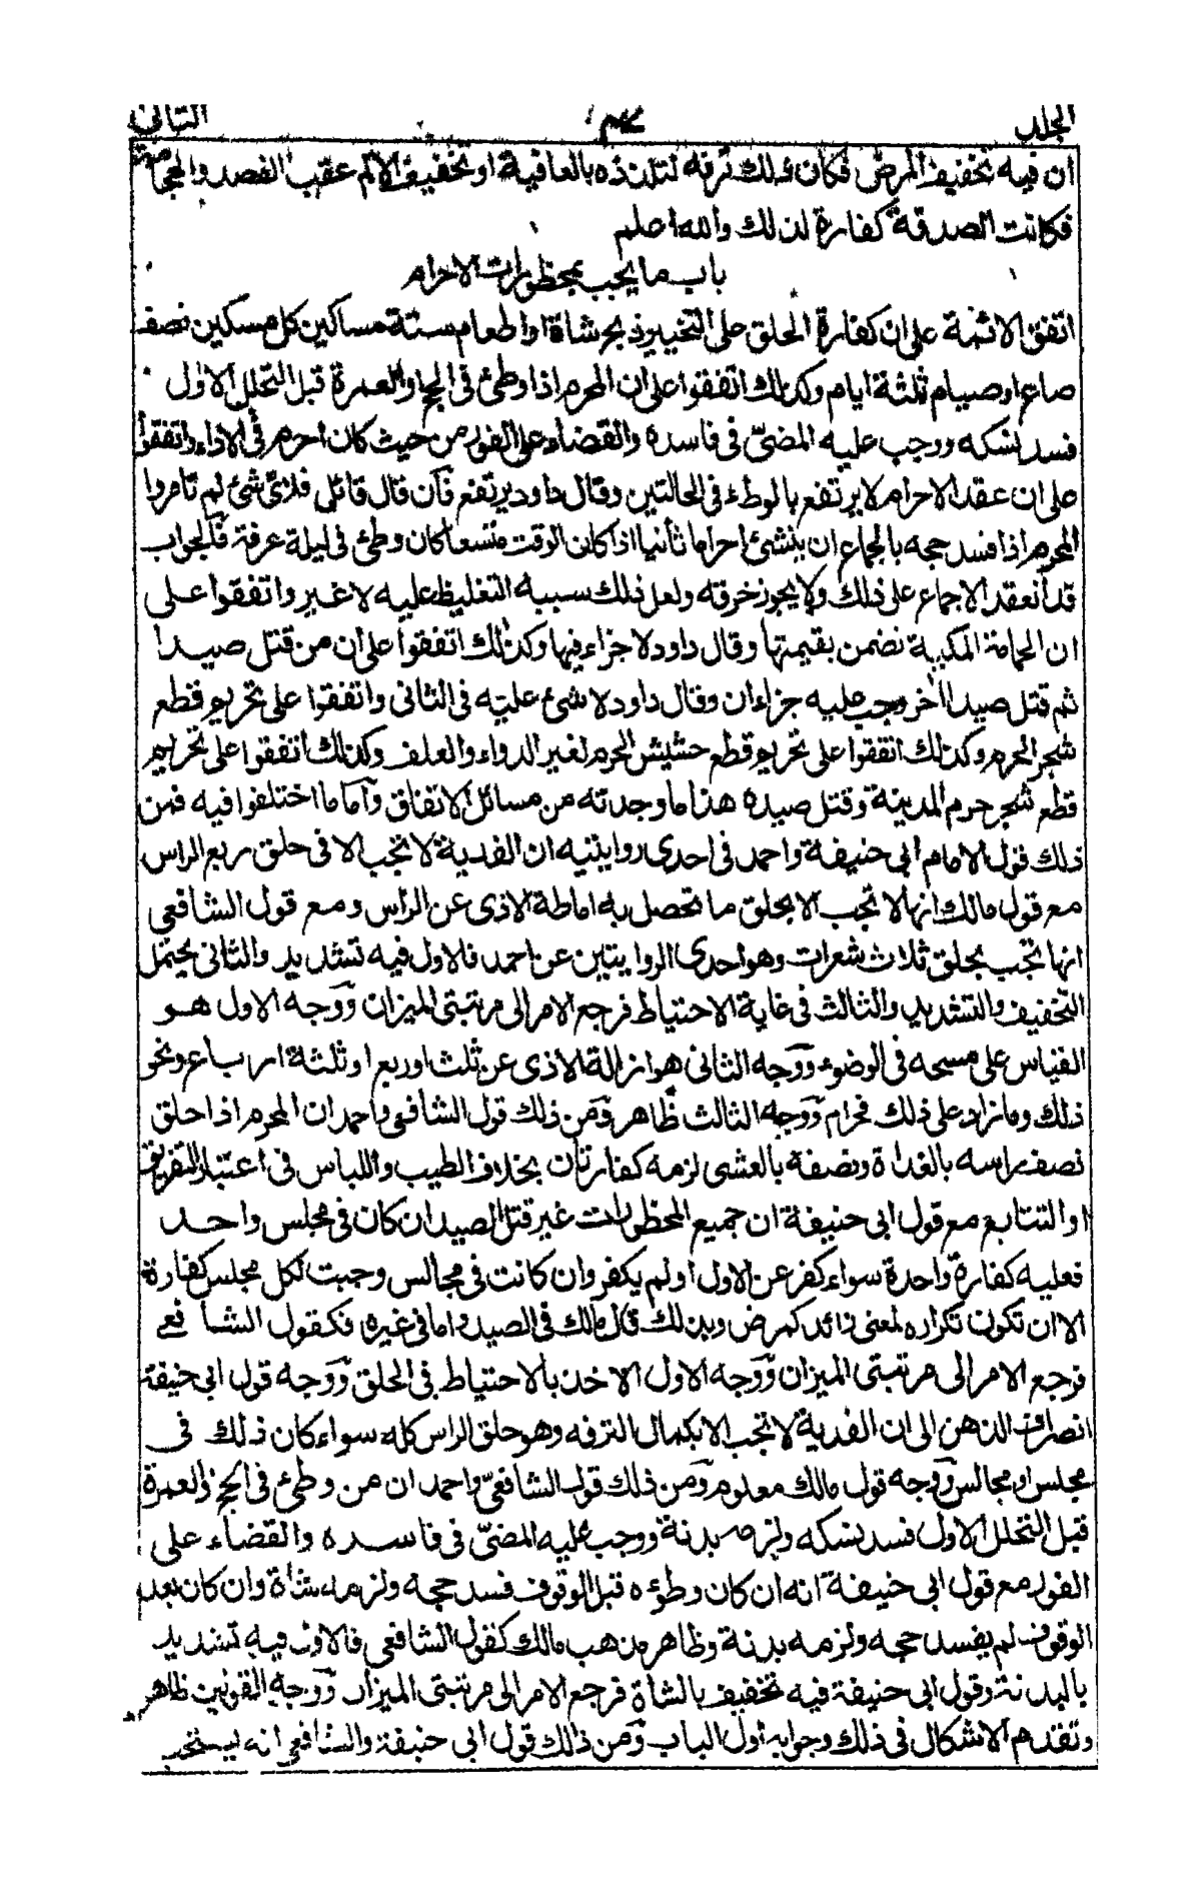 الجلد
الثانى
ان فيه تخفيف المرض فكان ذلك ترفه لتلذذه بالعافية او تخفيف الالم عقب الفصد والحجامة
فكانت الصدقة كفارة لذلك والله اعلم
باب ما يجب بمحظورات الاحرام
اتفق الائمة على ان كفارة الحلق على التخيير ذبح شاة او اطعام ستة مساكين كل مسكين نصف
صاع او صيام ثلثة ايام وكذلك اتفقوا على ان المحرم اذا وطئ فى الحج او العمرة قبل التحلل الاول
فسد نسكه ووجب عليه المضىّ فى فاسده والقضاء على الفور من حيث كان احرم فى الاداء واتفقوا
على ان عقد الاحرام لا يرتفع بالوطء فى الحالتين وقال داود يرتفع فآن قال قائل فلاىّ شئ لم تامروا
المحرم اذا فسد حجه بالجماع ان ينشئ احراما ثانيا اذا كان الوقت متسعا كان وطئ فى ليلة عرفة فالجواب
قد انعقد الاجماع على ذلك ولا يجوز خرقته ولعل ذلك سببه التغليظ عليه لا غير واتفقوا على
ان الحمامة المكية تضمن بقيمتها وقال داود لا جزاء فيها وكذلك اتفقوا على ان من قتل صيدا
ثم قتل صيدا اخر وجب عليه جزاءان وقال داود لا شئ عليه فى الثانى واتفقوا على تحريم قطع
شجر الحرم وكذلك اتفقوا على تحريم قطع حشيش الحرم لغير الدواء والعلف وكذلك اتفقوا على تحريم
قطع شجر حرم المدينة وقتل صيده هذا ما وجدته من مسائل الاتفاق وآما ما اختلفوا فيه فمن
ذلك قول الامام ابى حنيفة واحمد فى احدى روايتيه ان الفدية لا تجب الا فى حلق ربع الراس
مع قول مالك انها لا تجب الا بحلق ما تحصل به اماطة الاذى عن الراس ومع قول الشافعى
انها تجب بحلق ثلاث شعرات وهو احدى الروايتين عن احمد فالاول فيه تشديد والثانى يحتمل
التخفيف والتشديد والثالث فى غاية الاحتياط فرجع الامر الى مرتبتى الميزان ووجه الاول هو
القياس على مسحه فى الوضوء ووجه الثانى هو ازالة الاذى عن ثلث اوربع او ثلثة ارباع ونحو
ذلك وما زاد على ذلك فحرام ووجه الثالث ظاهر ومن ذلك قول الشافعى واحمد ان المحرم اذا حلق
نصف راسه بالغداة ونصفه بالعشى لزمه كفارتان بخلاف الطيب واللباس فى اعتبار التفريق
او التتابع مع قول ابى حنيفة ان جميع المحظورات غير قتل الصيد ان كان فى مجلس واحد
فعليه كفارة واحدة سواء كفر عن الاول او لم يكفر وان كانت فى مجالس وجبت لكل مجلس كفارة
الا ان تكون تكراره لمعنى زائد كمرض وبذلك قال مالك فى الصيد واما فى غيره فكقول الشافعى
فرجع الامر الى مرتبتى الميزان ووجه الاول الاخذ بالاحتياط فى الحلق ووجه قول ابى حنيفة
انصراف الذهن الى ان الفدية لا تجب الا بكمال الترفه وهو حلق الراس كله سواء كان ذلك فى
مجلس او مجالس ووجه قول مالك معلوم ومن ذلك قول الشافعىّ واحمد ان من وطئ فى الحج والعمرة
قبل التحلل الاول فسد نسكه ولزمه بدنة ووجب عليه المضىّ فى فاسده والقضاء على
الفور مع قول ابى حنيفة انه ان كان وطؤه قبل الوقوف فسد حجه ولزمه شاة وان كان بعد
الوقوف لم يفسد حجه ولزمه بدنة وظاهر مذهب مالك كقول الشافعى فالاول فيه تشديد
بالبدنة وقول ابى حنيفة فيه تخفيف بالشاة فرجع الامر الى مرتبتى الميزان ووجه القولين ظاهر
وتقدم الاشكال فى ذلك وجوابه اول الباب ومن ذلك قول ابى حنيفة والشافعى انه يستحب